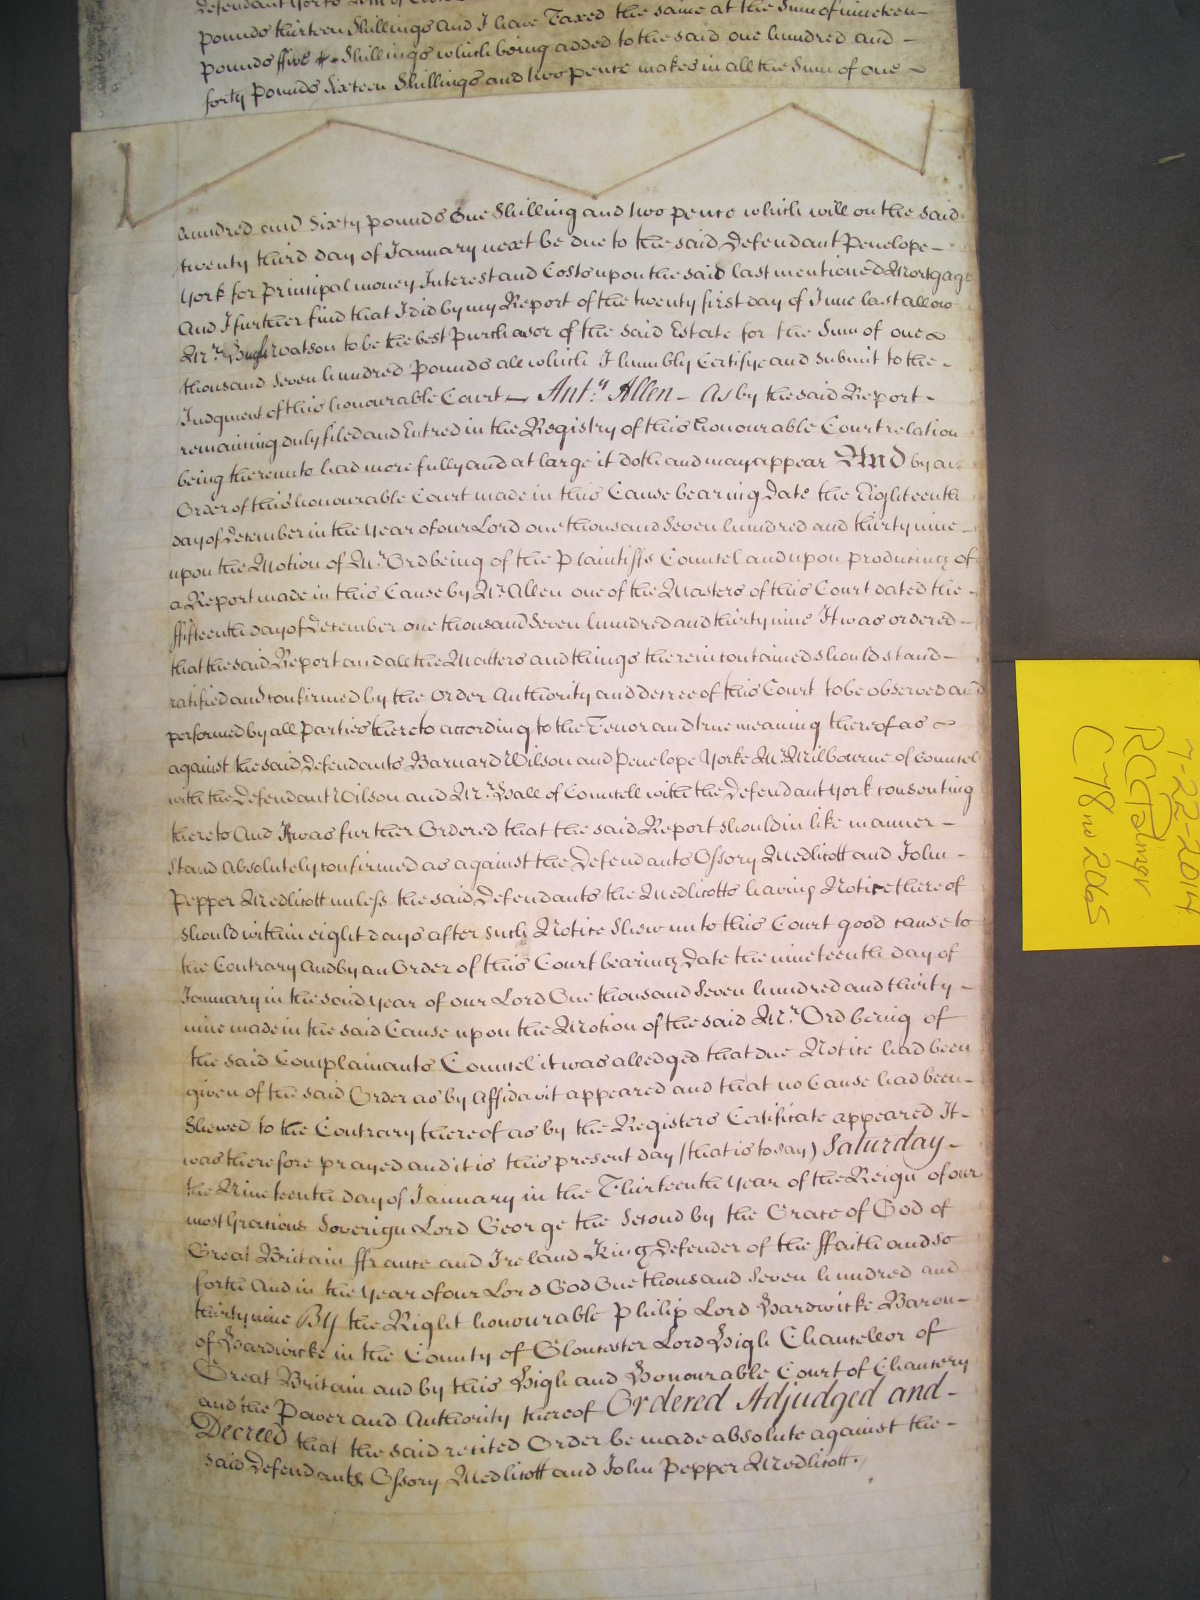 Defendant York
pounds thirteen Shillings And I have Taxed the same at the Sum of nineteen
pounds ffive Shillings which being added to the said one hundred and
forty pounds Sixteen Shillings and two pence makes in all the Sum of one
hundred and Sixty pounds One Shilling and two pence which will on the said
twenty third day of January next be due to the said Defendant Penelope
York for principal money Interest and Costs upon the said last mentioned Mortgage
And I further find that I did by my Report of the twenty first day of June last allow
Mr. Hugh Watson to be the best purchaser of the said Estate for the Sum of one
thousand Seven hundred Pounds all which I humbly Certifye and submit to the
Judgment of this honourable Court Ant: Allen As by the said Report
remaining duly filed and Entred in the Registry of this honourable Court relation
being thereunto had more fully and at large it doth and may appear And by an
Order of this honourable Court made in this Cause bearing Date the Eighteenth
day of December in the Year of our Lord one thousand Seven hundred and thirty nine
upon the Motion of Mr. Ord being of the Plaintiffs Councel and upon producing of
a Report made in this Cause by Mr. Allen one of the Masters of this Court dated the
ffifteenth day of December one thousand Seven hundred and thirty nine It was ordered
that the said Report and all the Matters and things therein contained should stand
ratified and confirmed by the order Authority and decree of this Court to be observed and
performed by all Parties thereto according to the Tenor and true meaning thereof as
against the said Defendants Barnard Wilson and Penelope Yorke Mr. Milbourne of councel
with the Defendant Wilson and Mr. Hall of Councell with the Defendant York consenting
thereto And It was further Ordered that the said Report should in like manner
stand absolutely confirmed as against the Defendants Ossory Medlicott and John
Pepper Medlicott unless the said Defendants the Medlicotts having Notice thereof
should within eight days after such Notice Shew unto this Court good cause to
the Contrary And by an Order of this Court bearing Date the nineteenth day of
January in the said Year of our Lord One thousand Seven hundred and thirty
nine made in the said Cause upon the Motion of the said Mr. Ord being of
the said Complainants Councel it was alledged that due Notice had been
given of the said Order as by Affidavit appeared and that no Cause had been
Shewed to the Contrary thereof as by the Registers Certificate appeared It
was therefore prayed and it is this present day (that is to say) Saturday
the Nineteenth day of January in the Thirteenth Year of the Reign of our
most Gracious Soverign Lord George the Second by the Grace of God of
Great Britain ffrance and Ireland King Defender of the ffaith and so
forth And in the Year of our Lord God One thousand Seven hundred and
thirty nine By the Right honourable Philip Lord Hardwicke Baron
of Hardwicke in the County of Gloucester Lord High Chancellor of
Great Britain and by this High and Honourable Court of Chancery
and the Power and Authority thereof Ordered Adjudged and
Decreed that the said recited Order be made absolute against the
said Defendants Ossory Medlicott and John Pepper Medlicott.
7-22-2014
RCPalmer
C 78 no 2065